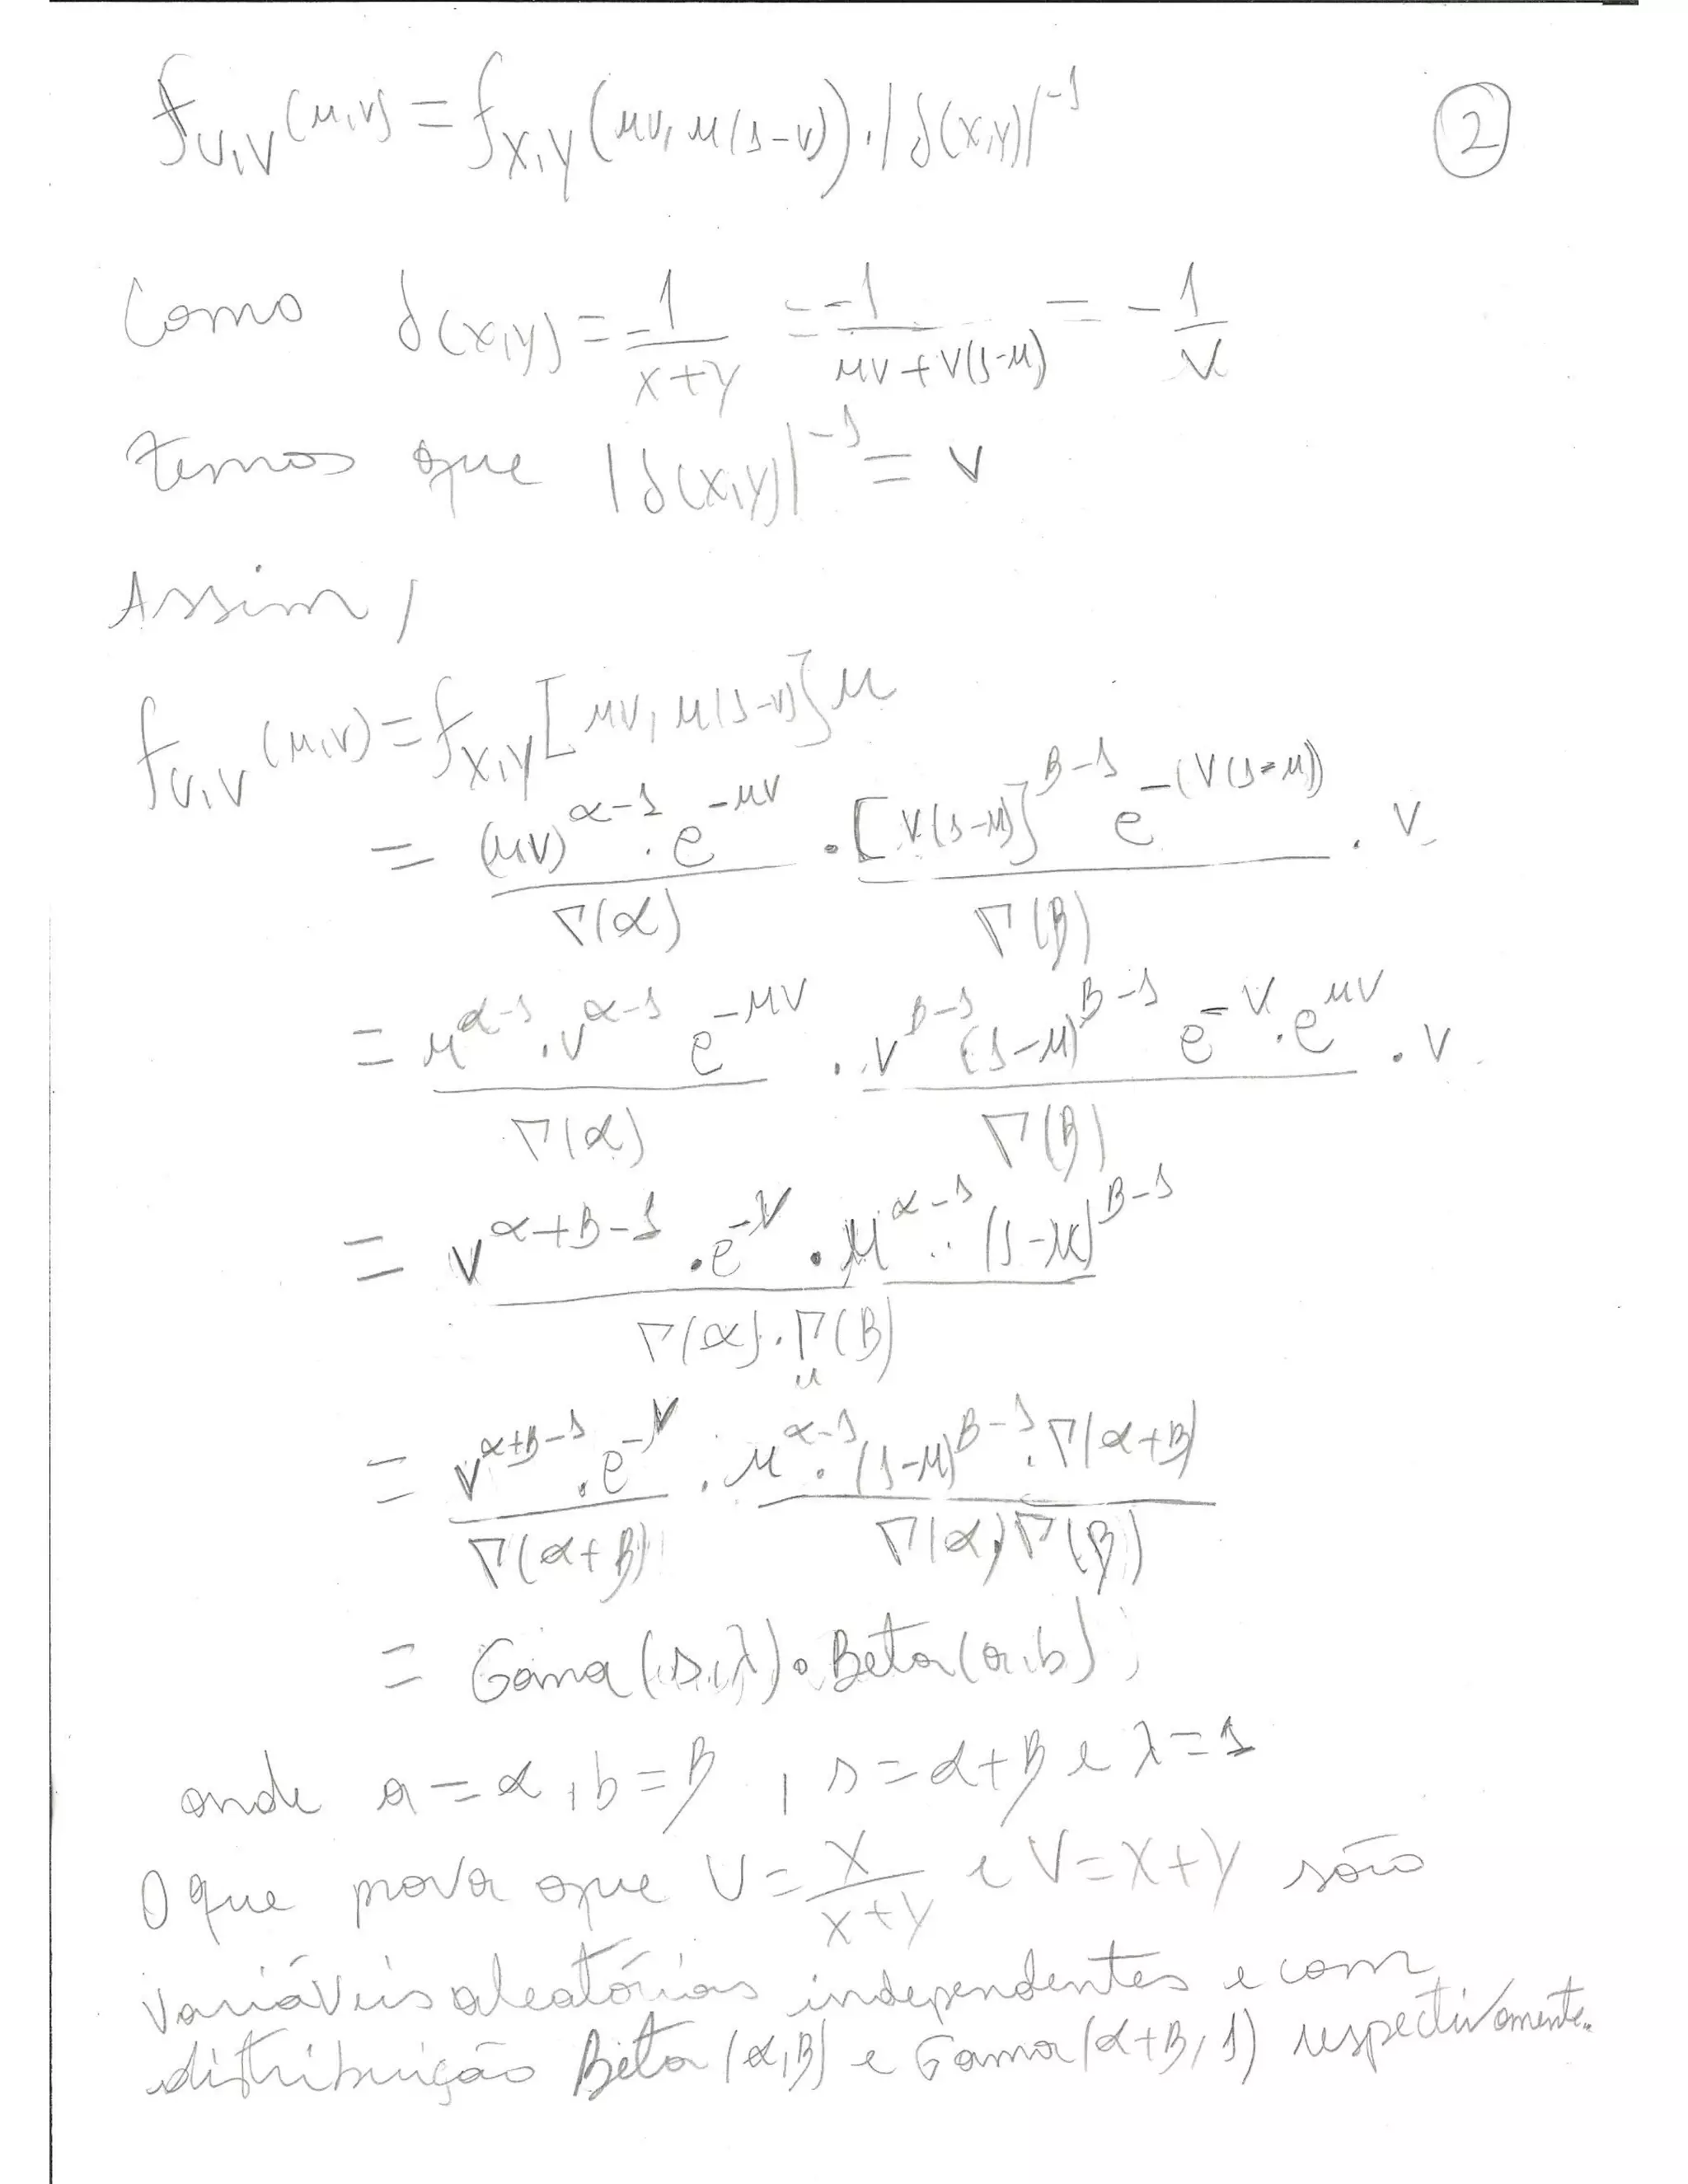 f_{U,V}(u,v) = f_{X,Y}(uv, u(1-v)) . |J(x,y)|^{-1}
2
Como J(x,y) = -1/(x+y) = -1/(uv+v(1-u)) = -1/v
temos que |J(x,y)|^{-1} = v
Assim,
f_{U,V}(u,v) = f_{X,Y}[uv, u(1-v)]u
= (uv)^{α-1} . e^{-uv} / Γ(α) . [v(1-u)]^{β-1} e^{-(v(1-u))} / Γ(β) . v
= u^{α-1} . v^{α-1} e^{-uv} / Γ(α) . v^{β-1} (1-u)^{β-1} e^{-v} . e^{uv} / Γ(β) . v
= v^{α+β-1} . e^{-v} . u^{α-1} . (1-u)^{β-1} / Γ(α) . Γ(β)
= v^{α+β-1} . e^{-v} / Γ(α+β) . u^{α-1} . (1-u)^{β-1} . Γ(α+β) / Γ(α) Γ(β)
= Gama(s,λ) . Beta(a,b),
onde a = α, b = β, s = α+β e λ = 1
O que prova que U = X/(X+Y) e V = X+Y são
variáveis aleatórias independentes e com
distribuição Beta(α,β) e Gama(α+β,1) respectivamente.